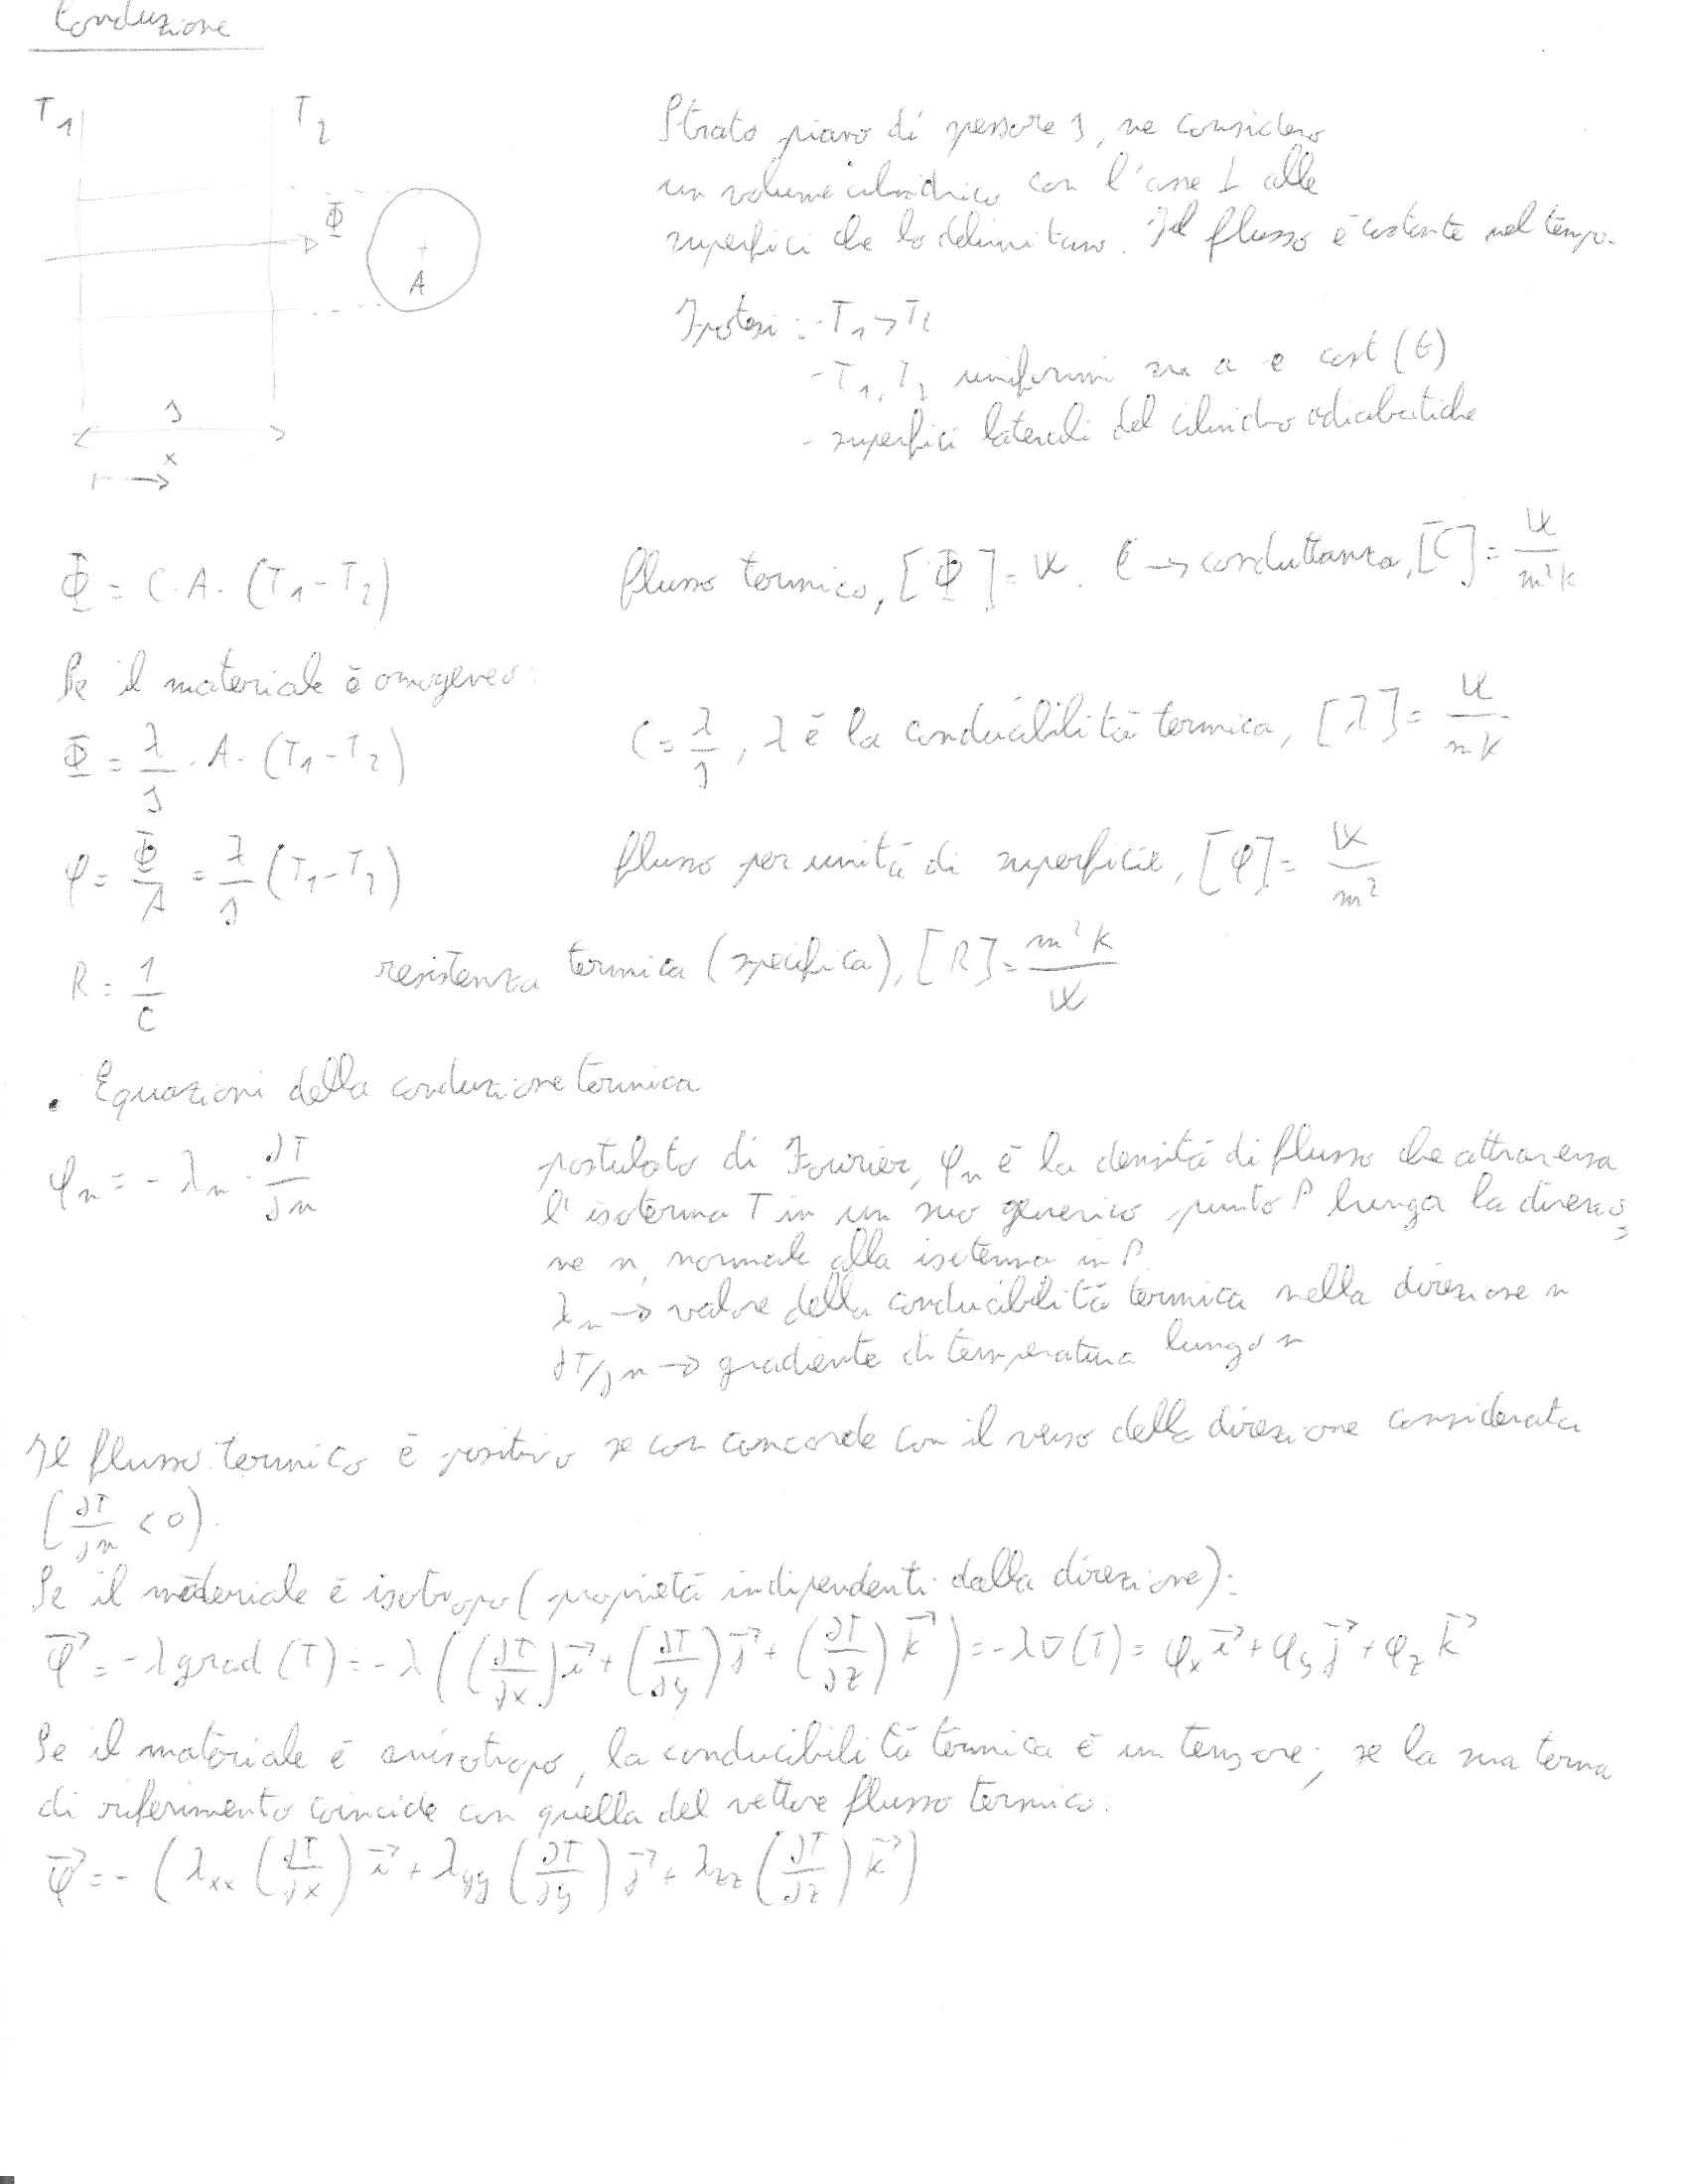 Conduzione
T₁ T₂
Φ
A
s
x
Strato piano di spessore s, ne considero
un volume cilindrico con l'asse ⊥ alle
superfici che lo delimitano. Il flusso è costante nel tempo.
Ipotesi: - T₁ > T₂
- T₁, T₂ uniformi su a e cost (t)
- superfici laterali del cilindro adiabatiche
Φ = C · A · (T₁ - T₂) flusso termico, [Φ] = W. C → conduttanza, [C] = W/m²K
Se il materiale è omogeneo:
Φ = λ/s · A · (T₁ - T₂) C = λ/s, λ è la conducibilità termica, [λ] = W/mK
φ = Φ/A = λ/s (T₁ - T₂) flusso per unità di superficie, [φ] = W/m²
R = 1/C resistenza termica (specifica), [R] = m²K/W
• Equazioni della conduzione termica
φₙ = - λₙ · ∂T/∂n postulato di Fourier, φₙ è la densità di flusso che attraversa
l'isoterma T in un suo generico punto P lungo la direzio
ne n, normale alla isoterma in P.
λₙ → valore della conducibilità termica nella direzione n
∂T/∂n → gradiente di temperatura lungo n
Il flusso termico è positivo se con concorde con il verso della direzione considerata
(∂T/∂n < 0).
Se il materiale è isotropo (proprietà indipendenti dalla direzione):
φ⃗ = -λ grad (T) = -λ ((∂T/∂x) i⃗ + (∂T/∂y) j⃗ + (∂T/∂z) k⃗) = -λ ∇(T) = φₓ i⃗ + φ_y j⃗ + φ_z k⃗
Se il materiale è anisotropo, la conducibilità termica è un tensore; se la sua terna
di riferimento coincide con quella del vettore flusso termico:
φ⃗ = - (λₓₓ (∂T/∂x) i⃗ + λ_yy (∂T/∂y) j⃗ + λ_zz (∂T/∂z) k⃗)